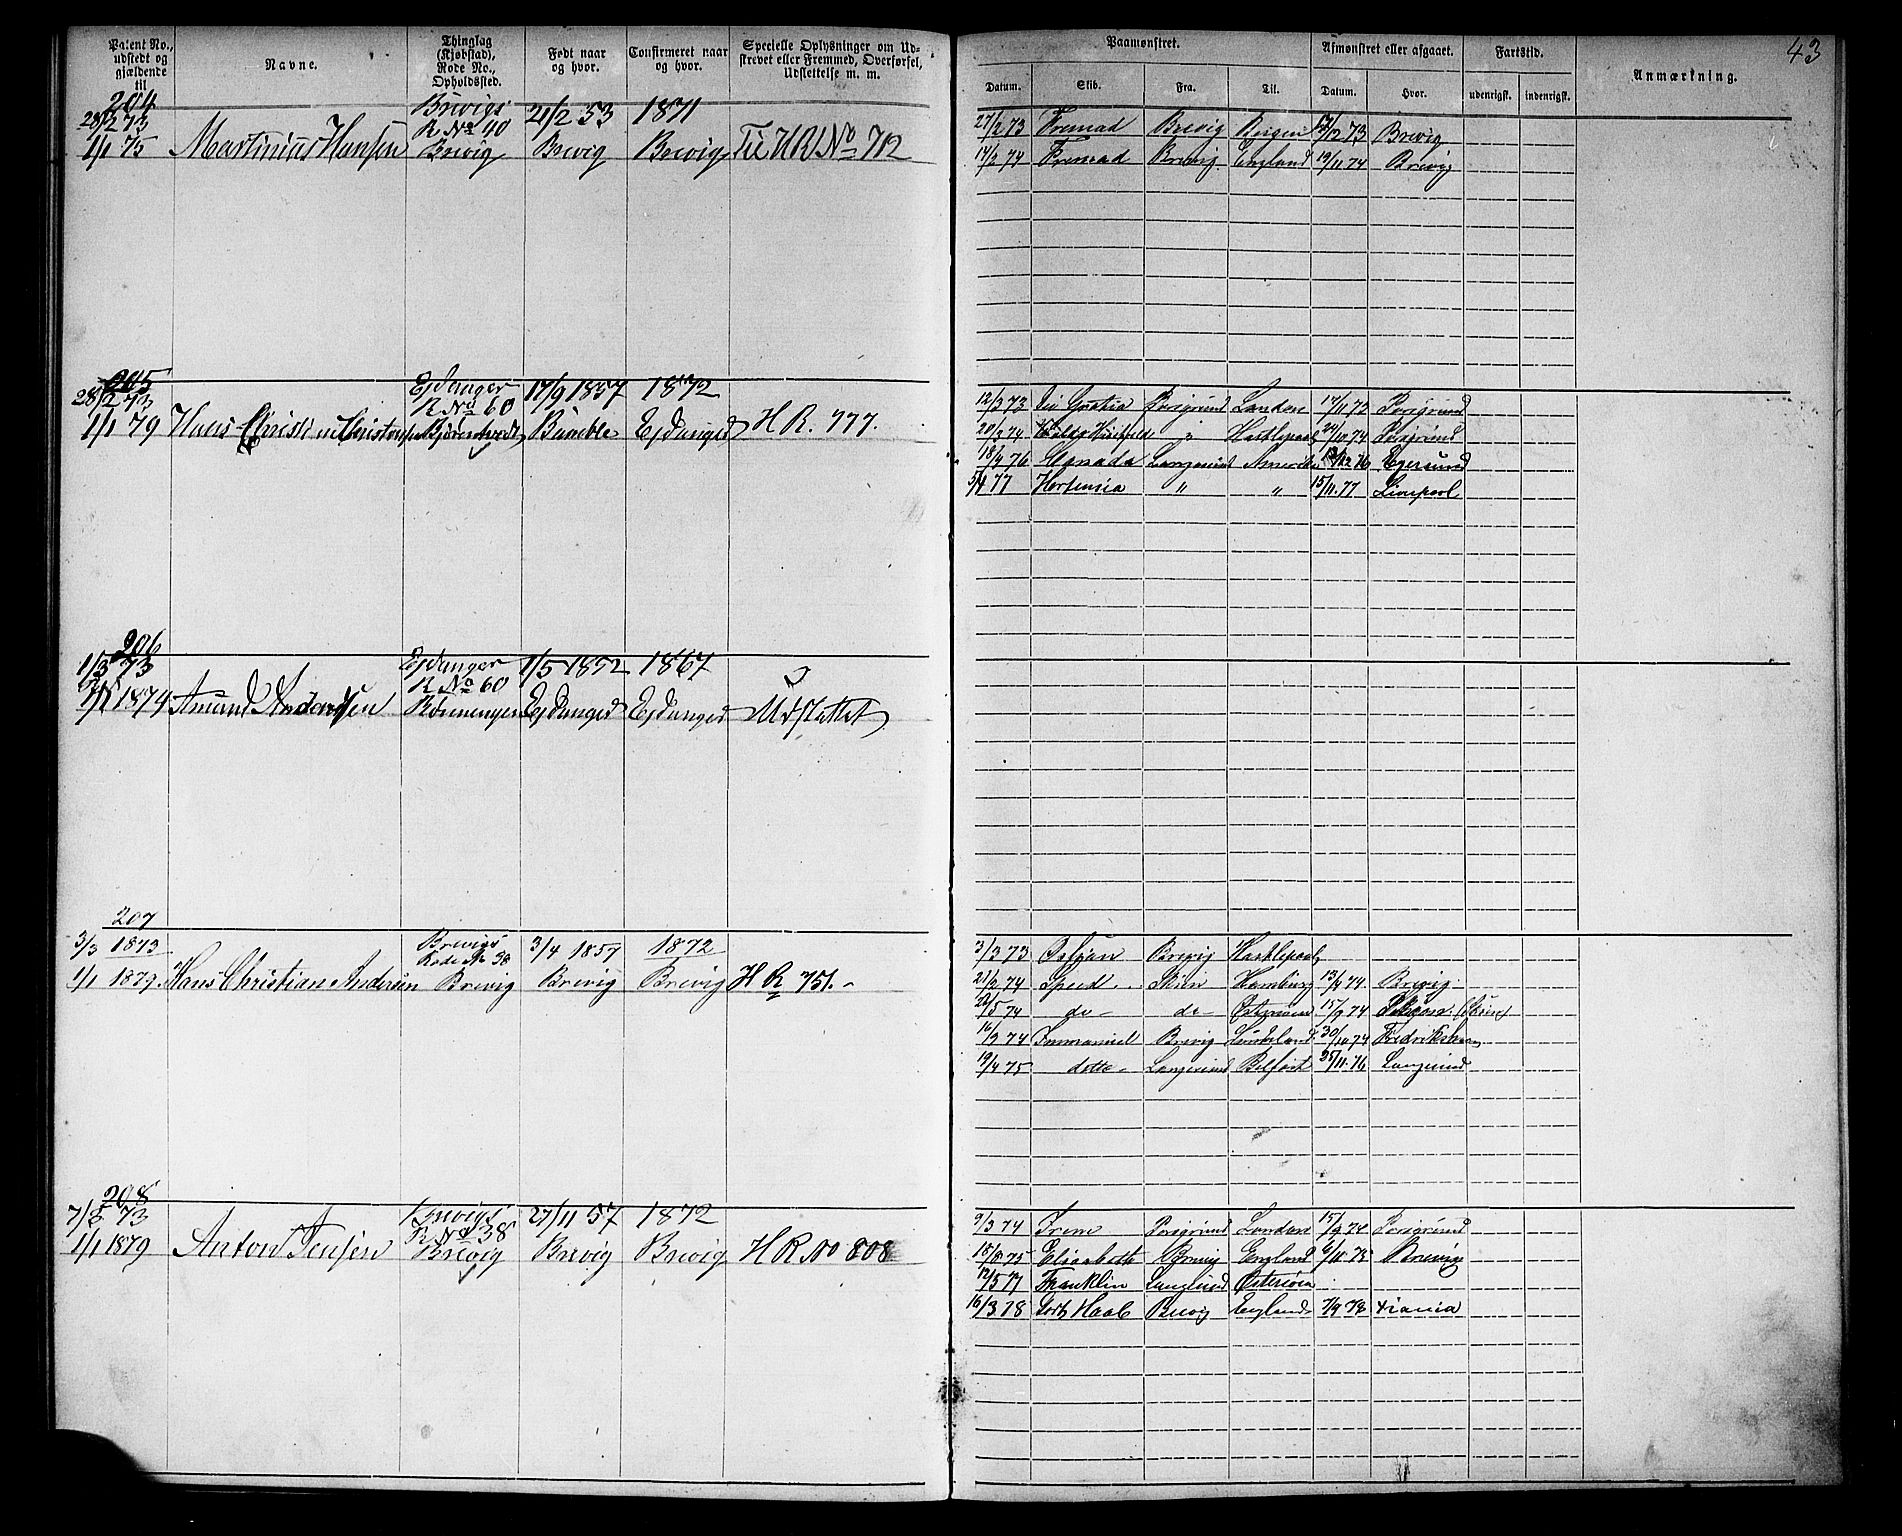 43
Patent No., udstedt og gjældende til
Navne.
Thinglag (Kjøbstad), Rode No., Opholdssted.
Født naar og hvor.
Confirmeret naar og hvor.
Specielle Oplysninger om Udstrevet eller Fremmed, Overførsel, Udslettelse m. m.
Paamønstret.
Afmønstret eller afgaaet.
Fartstid.
Anmærkning.
Datum. Skib. Fra. Til. Datum. Hvor. udenrigst. indenrigst.
204
28/2 73
1/1 75
Martinius Hansen
Brevigs
R No 40
Brevig
21/2 53
Brevig
1871
Brevig
Til HR No 712
27/2 73 Fremad Brevig Bergen 73 Brevig
14/2 74 Fremad Brevig England 19/11 74 Brevig
205
28/2 73
1/1 79
Hans Christian Christensen
Ejdanger
R No 60
17/9 1857
Bamble
1872
Ejdanger
H R. 777.
12/3 73 Deo Gratia Porsgrund London Porsgrund
20/3 74 " Hartlepool 74 Porsgrund
18/4 76 Langesund Amerika 76 Egersund
5/4 77 Hortensia " " 15/11 77 Liverpool
206
1/3 73
1/1 1874
Amund Andersen
Ejdanger
R No 60
Rønningen
1/5 1852
Ejdanger
1867
Ejdanger
Udslettet
207
3/3 1873
1/1 1879.
Hans Christian Andersen
Brevigs
Rode No 38
Brevig
3/4 1857
Brevig
1872
Brevig
H R 751.
3/3 73 Brevig Hartlepool
21/2 74 Speed Skien Hamburg 13/4 74. Brevig
74 do do Østersøen 15/9 74 (Skien)
16/3 74 Immanuel Brevig Sunderland 30/10 74 Fredrikshavn
19/4 75 ditto Langesund Belfast 25/11 76 Langesund
208
7/3 73
1/1 1879
Anton Jensen
Brevigs
R No 38
Brevig
27/11 57
Brevig
1872
Brevig
H R No 808
9/3 74 Frem Porsgrund London 15/9 74 Porsgrund
18/8 75 Elisabeth Brevig England 75 Brevig
12/5 77 Franklin Langesund Østersøen
16/3 78 Haab Brevig England 7/9 78 Xiania